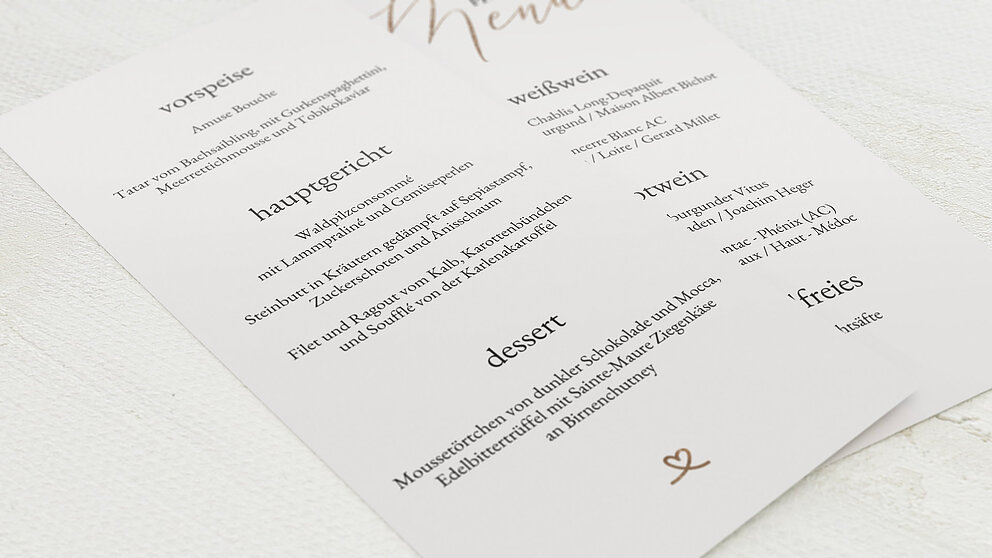 Menü
vorspeise
Amuse Bouche
Tatar vom Bachsaibling, mit Gurkenspaghettini,
Meerrettichmousse und Tobikokaviar
hauptgericht
Waldpilzconsommé
mit Lammpraliné und Gemüseperlen
Steinbutt in Kräutern gedämpft auf Sepiastampf,
Zuckerschoten und Anisschaum
Filet und Ragout vom Kalb, Karottenbündchen
und Soufflé von der Karlenakartoffel
dessert
Moussetörtchen von dunkler Schokolade und Mocca,
Edelbittertrüffel mit Sainte-Maure Ziegenkäse
an Birnenchutney
weißwein
Chablis Long-Depaquit
urgund / Maison Albert Bichot
ncerre Blanc AC
/ Loire / Gerard Millet
otwein
burgunder Vitus
den / Joachim Heger
ntac - Phénix (AC)
aux / Haut - Médoc
freies
htsäfte